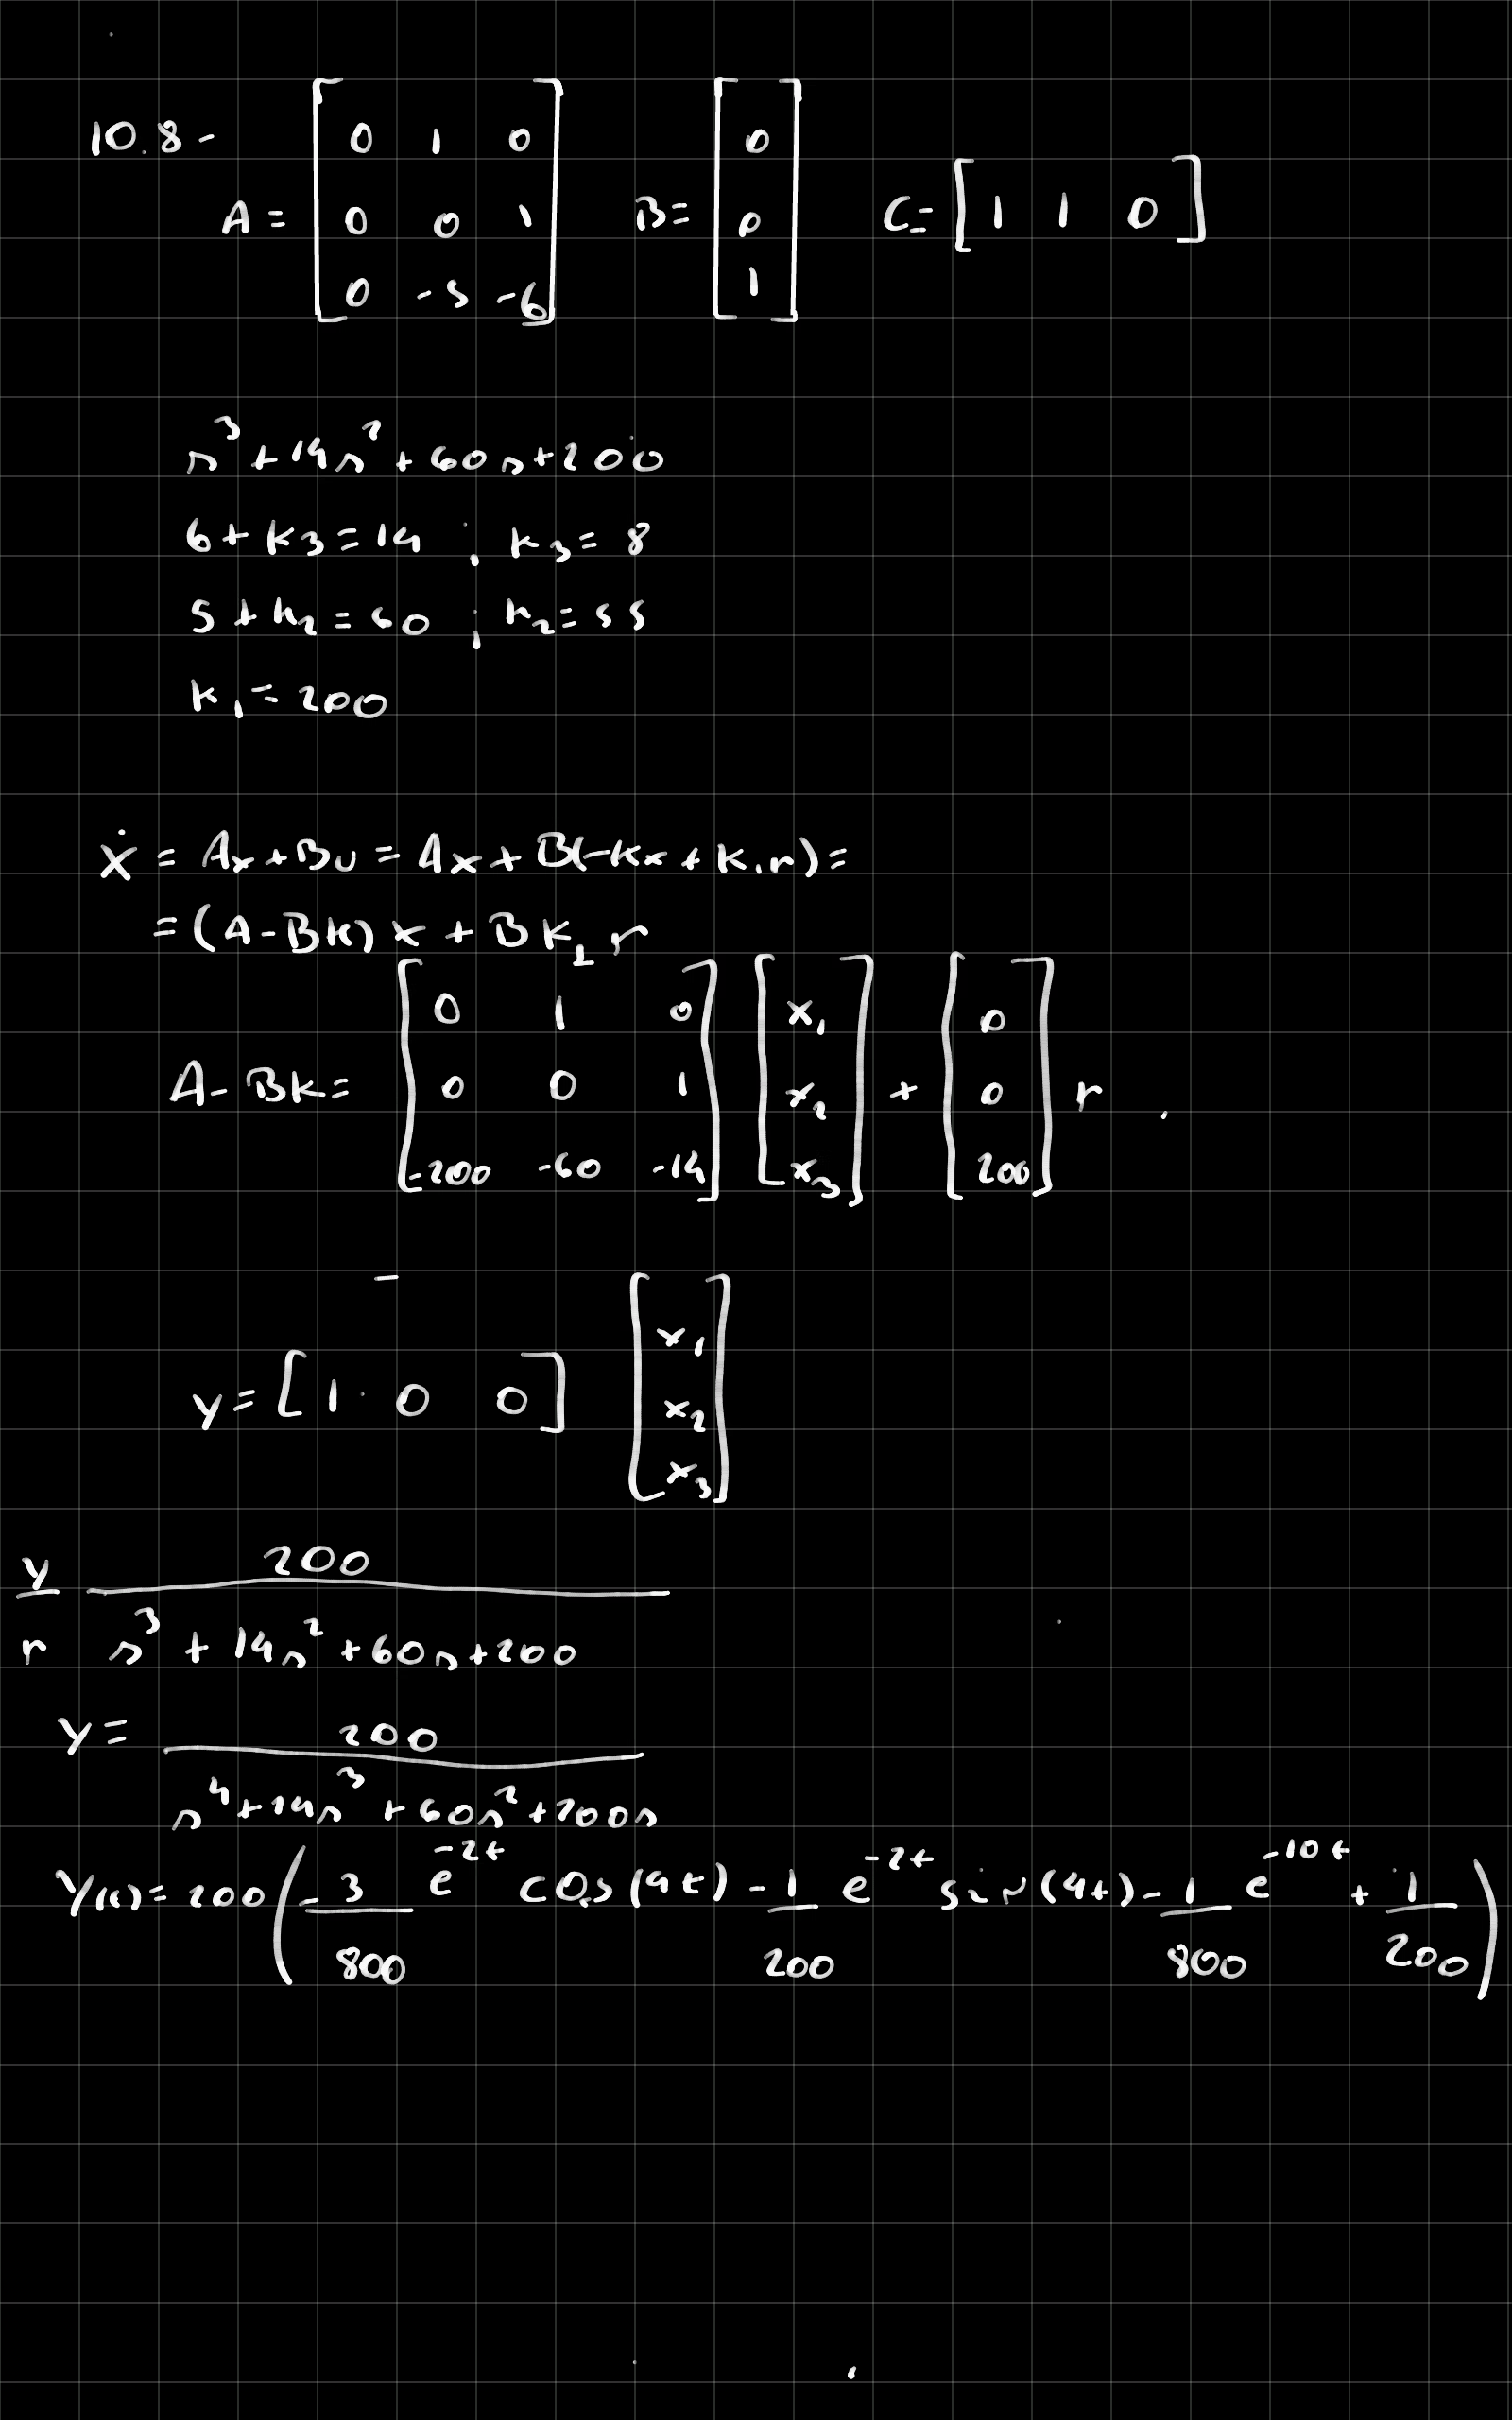 10.8-
A = [0 1 0; 0 0 1; 0 -5 -6] B = [0; 0; 1] C = [1 1 0]
s³ + 14s² + 60s + 200
6 + k₃ = 14 ; k₃ = 8
5 + k₂ = 60 ; k₂ = 55
k₁ = 200
ẋ = Ax + Bu = Ax + B(-Kx + k₁r) =
= (A - BK) x + B K₁ r
A - BK = [0 1 0; 0 0 1; -200 -60 -14] [x₁; x₂; x₃] + [0; 0; 200] r .
y = [1 0 0] [x₁; x₂; x₃]
y/r 200/(s³ + 14s² + 60s + 200)
y = 200/(s⁴ + 14s³ + 60s² + 200s)
y(t) = 200 (-3/800 e^(-2t) cos(4t) - 1/200 e^(-2t) sin(4t) - 1/800 e^(-10t) + 1/200)